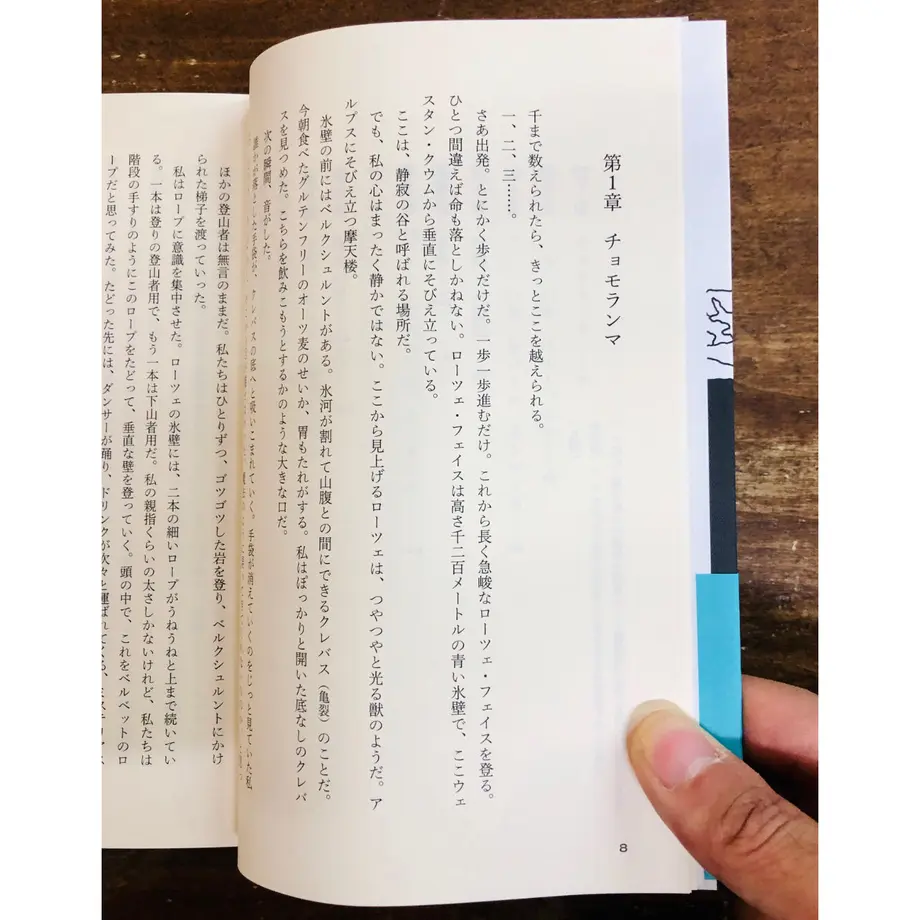 第1章 チョモランマ
千まで数えられたら、きっとここを越えられる。
一、二、三……。
さあ出発。とにかく歩くだけだ。一歩一歩進むだけ。これから長く急峻なローツェ・フェイスを登る。
ひとつ間違えば命も落としかねない。ローツェ・フェイスは高さ千二百メートルの青い氷壁で、ここウェ
スタン・クウムから垂直にそびえ立っている。
ここは、静寂の谷と呼ばれる場所だ。
でも、私の心はまったく静かではない。ここから見上げるローツェは、つやつやと光る獣のようだ。ア
ルプスにそびえ立つ摩天楼。
氷壁の前にはベルクシュルントがある。氷河が割れて山腹との間にできるクレバス（亀裂）のことだ。
今朝食べたグルテンフリーのオーツ麦のせいか、胃もたれがする。私はぽっかりと開いた底なしのクレバ
スを見つめた。こちらを飲みこもうとするかのような大きな口だ。
次の瞬間、音がした。
誰かが落とした手袋が、クレバスの底へと吸いこまれていく。手袋が消えていくのをじっと見ていた私
8
ほかの登山者は無言のままだ。私たちはひとりずつ、ゴツゴツした岩を登り、ベルクシュルントにかけ
られた梯子を渡っていった。
私はロープに意識を集中させた。ローツェの氷壁には、二本の細いロープがうねうねと上まで続いてい
る。一本は登りの登山者用で、もう一本は下山者用だ。私の親指くらいの太さしかないけれど、私たちは
階段の手すりのようにこのロープをたどって、垂直な壁を登っていく。頭の中で、これをベルベットのロ
ープだと思ってみた。たどった先には、ダンサーが踊り、ドリンクが次々と運ばれてくる、ミステリアス